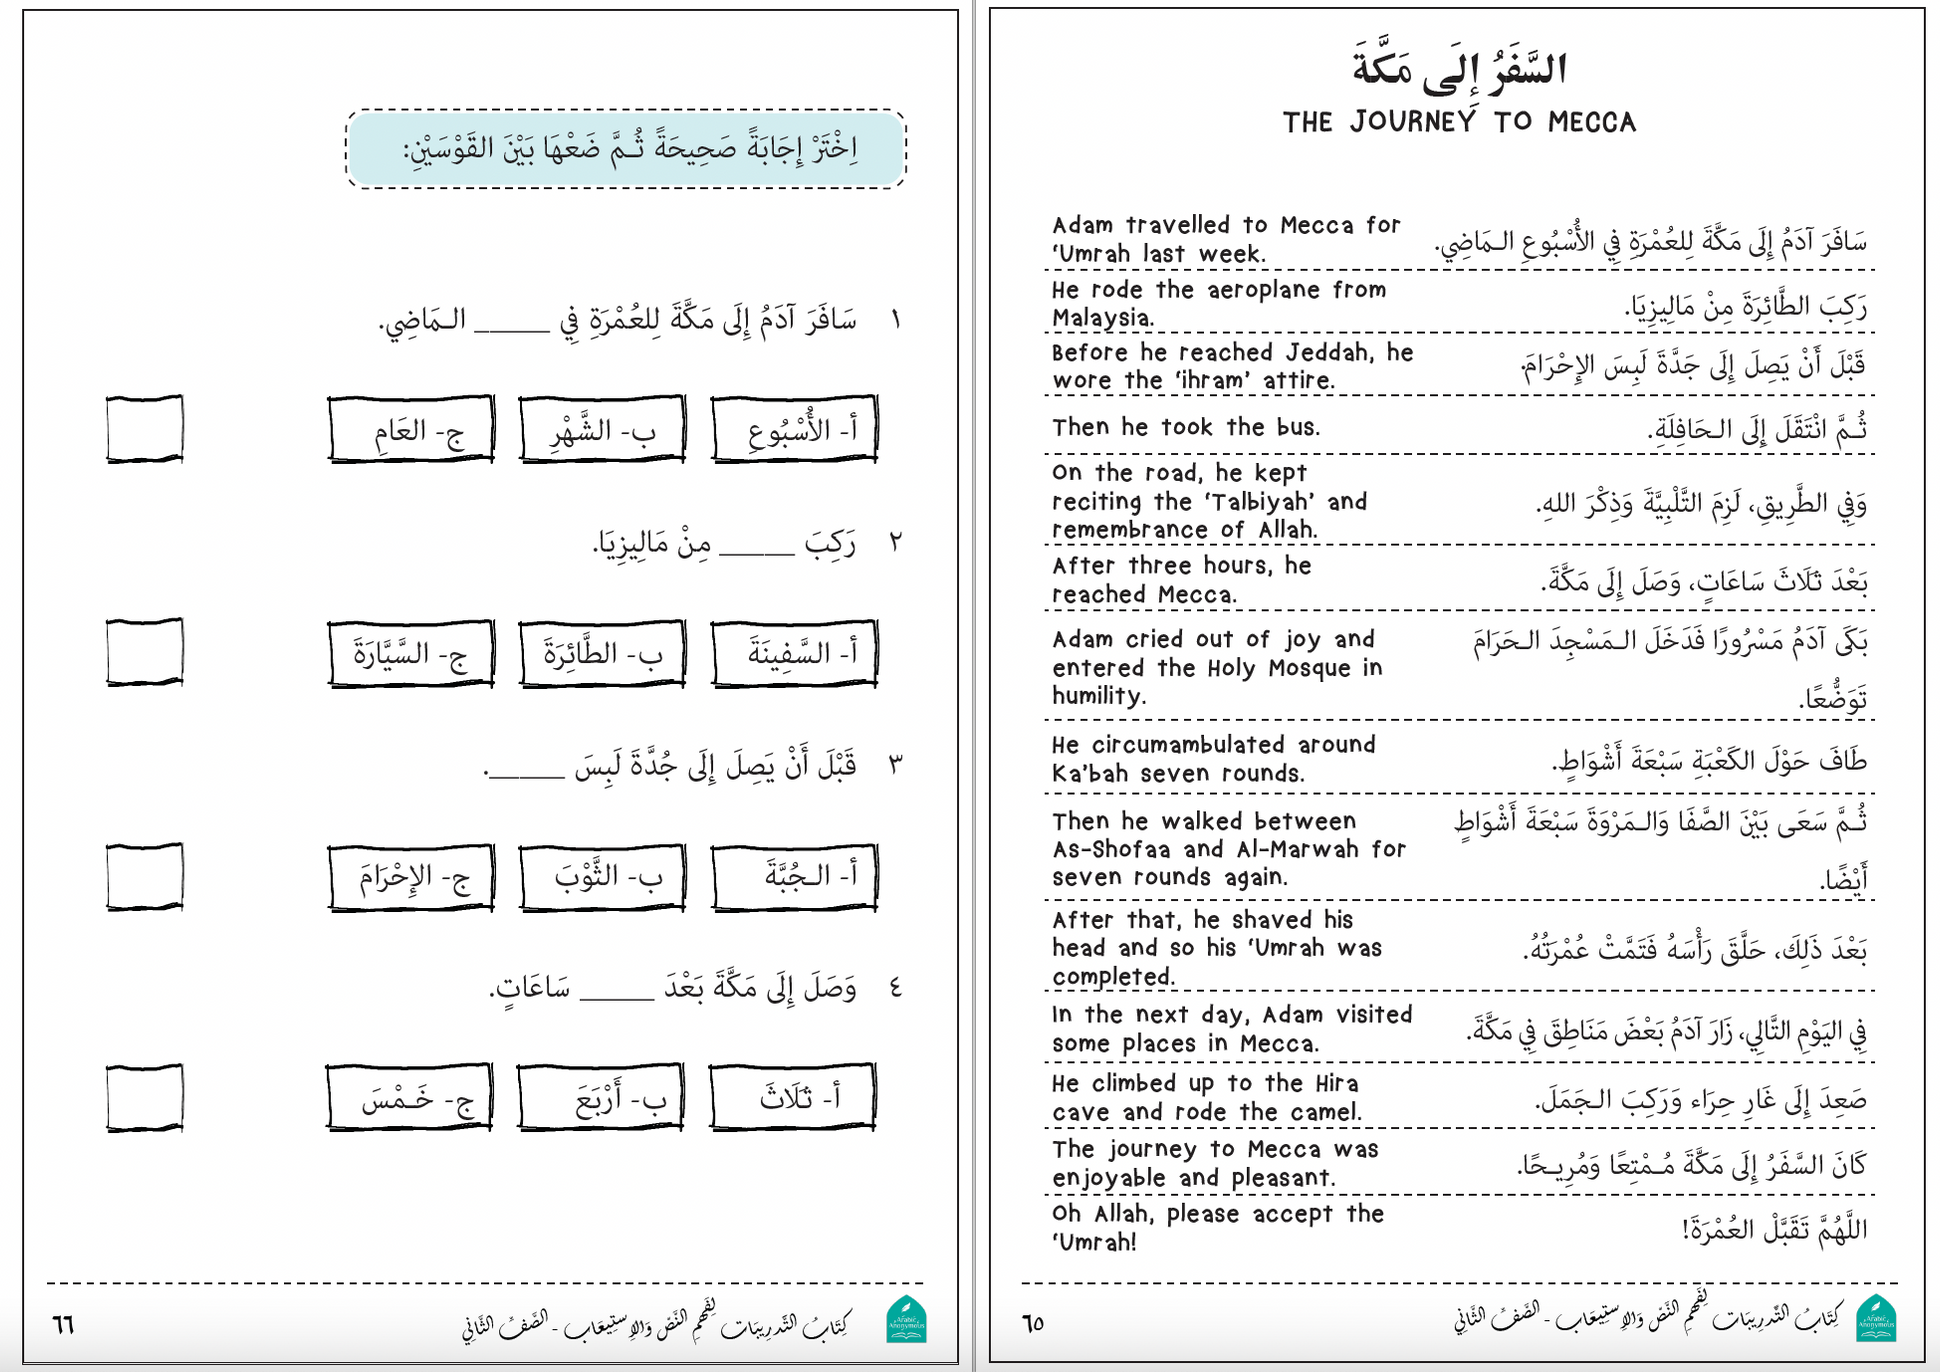 السَّفَرُ إِلَى مَكَّةَ
THE JOURNEY TO MECCA
سَافَرَ آدَمُ إِلَى مَكَّةَ لِلعُمْرَةِ فِي الأُسْبُوعِ الـمَاضِي.
Adam travelled to Mecca for
‘Umrah last week.
رَكِبَ الطَّائِرَةَ مِنْ مَالِيزِيَا.
He rode the aeroplane from
Malaysia.
قَبْلَ أَنْ يَصِلَ إِلَى جَدَّةَ لَبِسَ الإِحْرَامَ.
Before he reached Jeddah, he
wore the ‘ihram’ attire.
ثُـمَّ انْتَقَلَ إِلَى الـحَافِلَةِ.
Then he took the bus.
وَفِي الطَّرِيقِ، لَزِمَ التَّلْبِيَّةَ وَذِكْرَ اللهِ.
On the road, he kept
reciting the ‘Talbiyah’ and
remembrance of Allah.
بَعْدَ ثَلَاثَ سَاعَاتٍ، وَصَلَ إِلَى مَكَّةَ.
After three hours, he
reached Mecca.
بَكَى آدَمُ مَسْرُورًا فَدَخَلَ الـمَسْجِدَ الـحَرَامَ
تَوَضُّعًا.
Adam cried out of joy and
entered the Holy Mosque in
humility.
طَافَ حَوْلَ الكَعْبَةِ سَبْعَةَ أَشْوَاطٍ.
He circumambulated around
Ka’bah seven rounds.
ثُـمَّ سَعَى بَيْنَ الصَّفَا وَالـمَرْوَةَ سَبْعَةَ أَشْوَاطٍ
أَيْضًا.
Then he walked between
As-Shofaa and Al-Marwah for
seven rounds again.
بَعْدَ ذَلِكَ، حَلَّقَ رَأْسَهُ فَتَمَّتْ عُمْرَتُهُ.
After that, he shaved his
head and so his ‘Umrah was
completed.
فِي اليَوْمِ التَّالِي، زَارَ آدَمُ بَعْضَ مَنَاطِقَ فِي مَكَّةَ.
In the next day, Adam visited
some places in Mecca.
صَعِدَ إِلَى غَارِ حِرَاء وَرَكِبَ الـجَمَلَ.
He climbed up to the Hira
cave and rode the camel.
كَانَ السَّفَرُ إِلَى مَكَّةَ مُـمْتِعًا وَمُرِيـحًا.
The journey to Mecca was
enjoyable and pleasant.
اللَّهُمَّ تَقَبَّلْ العُمْرَةَ!
Oh Allah, please accept the
‘Umrah!
Arabic
Anonymous
كِتَابُ التَّدرِيبَات لِفَهْمِ النَّصّ وَالاِستِيعَاب - الصَّفّ الثَّانِي
٦٥
اِخْتَرْ إِجَابَةً صَحِيحَةً ثُـمَّ ضَعْهَا بَيْنَ القَوْسَيْنِ:
١ سَافَرَ آدَمُ إِلَى مَكَّةَ لِلعُمْرَةِ فِي _____ الـمَاضِي.
أ- الأُسْبُوعِ ب- الشَّهْرِ ج- العَامِ
٢ رَكِبَ _____ مِنْ مَالِيزِيَا.
أ- السَّفِينَةَ ب- الطَّائِرَةَ ج- السَّيَّارَةَ
٣ قَبْلَ أَنْ يَصِلَ إِلَى جُدَّةَ لَبِسَ _____.
أ- الـجُبَّةَ ب- الثَّوْبَ ج- الإِحْرَامَ
٤ وَصَلَ إِلَى مَكَّةَ بَعْدَ _____ سَاعَاتٍ.
أ- ثَلَاثَ ب- أَرْبَعَ ج- خَـمْسَ
Arabic
Anonymous
كِتَابُ التَّدرِيبَات لِفَهْمِ النَّصّ وَالاِستِيعَاب - الصَّفّ الثَّانِي
٦٦